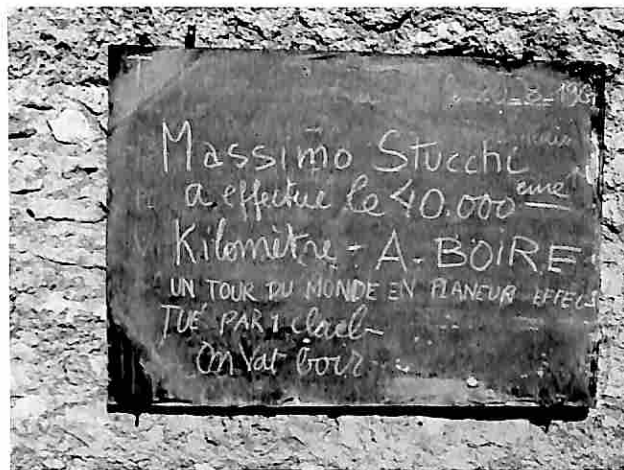 Massimo Stucchi
a effectué le 40.000 eme
Kilomètre - A. BOIRE
UN TOUR DU MONDE EN PLANEUR EFFEC
TUÉ PAR 1
On Vat boir